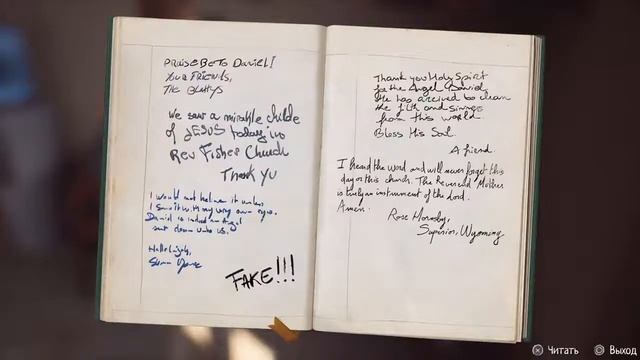 PRAISE BE TO DANIEL!
YOUR FRIENDS,
THE BLATTYS
We saw a mirakle childe
of JESUS today in
Rev Fisher Church
Thank Yu
I would not believe it unless
I saw it with my very own eyes.
Daniel is indeed an Angel
sent down unto us.
Hallelujah,
FAKE!!!
Thank you Holy Spirit
for the Angel Daniel.
He has arrived to clean
the filth and sinners
from this world.
Bless His Soul
A friend.
I heard the word and will never forget this
day or this church. The Reverend Mother
is truly an instrument of the Lord.
Amen.
Rose Hornsby,
Superior, Wyoming
Читать
Выход